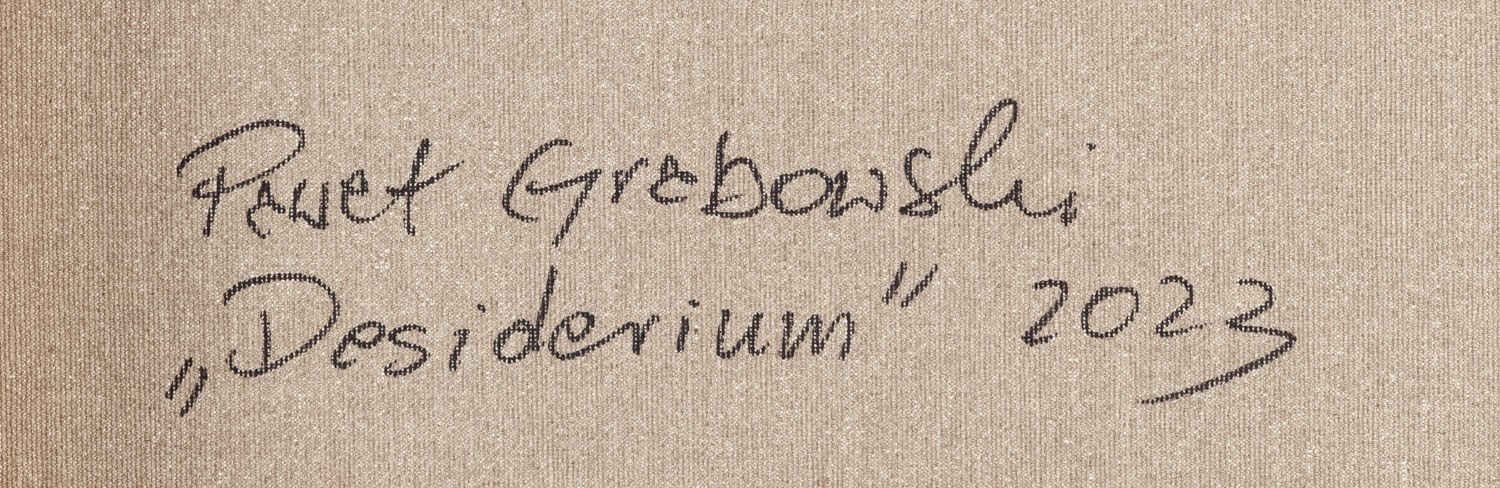 Paweł Grabowski
„Desiderium" 2023